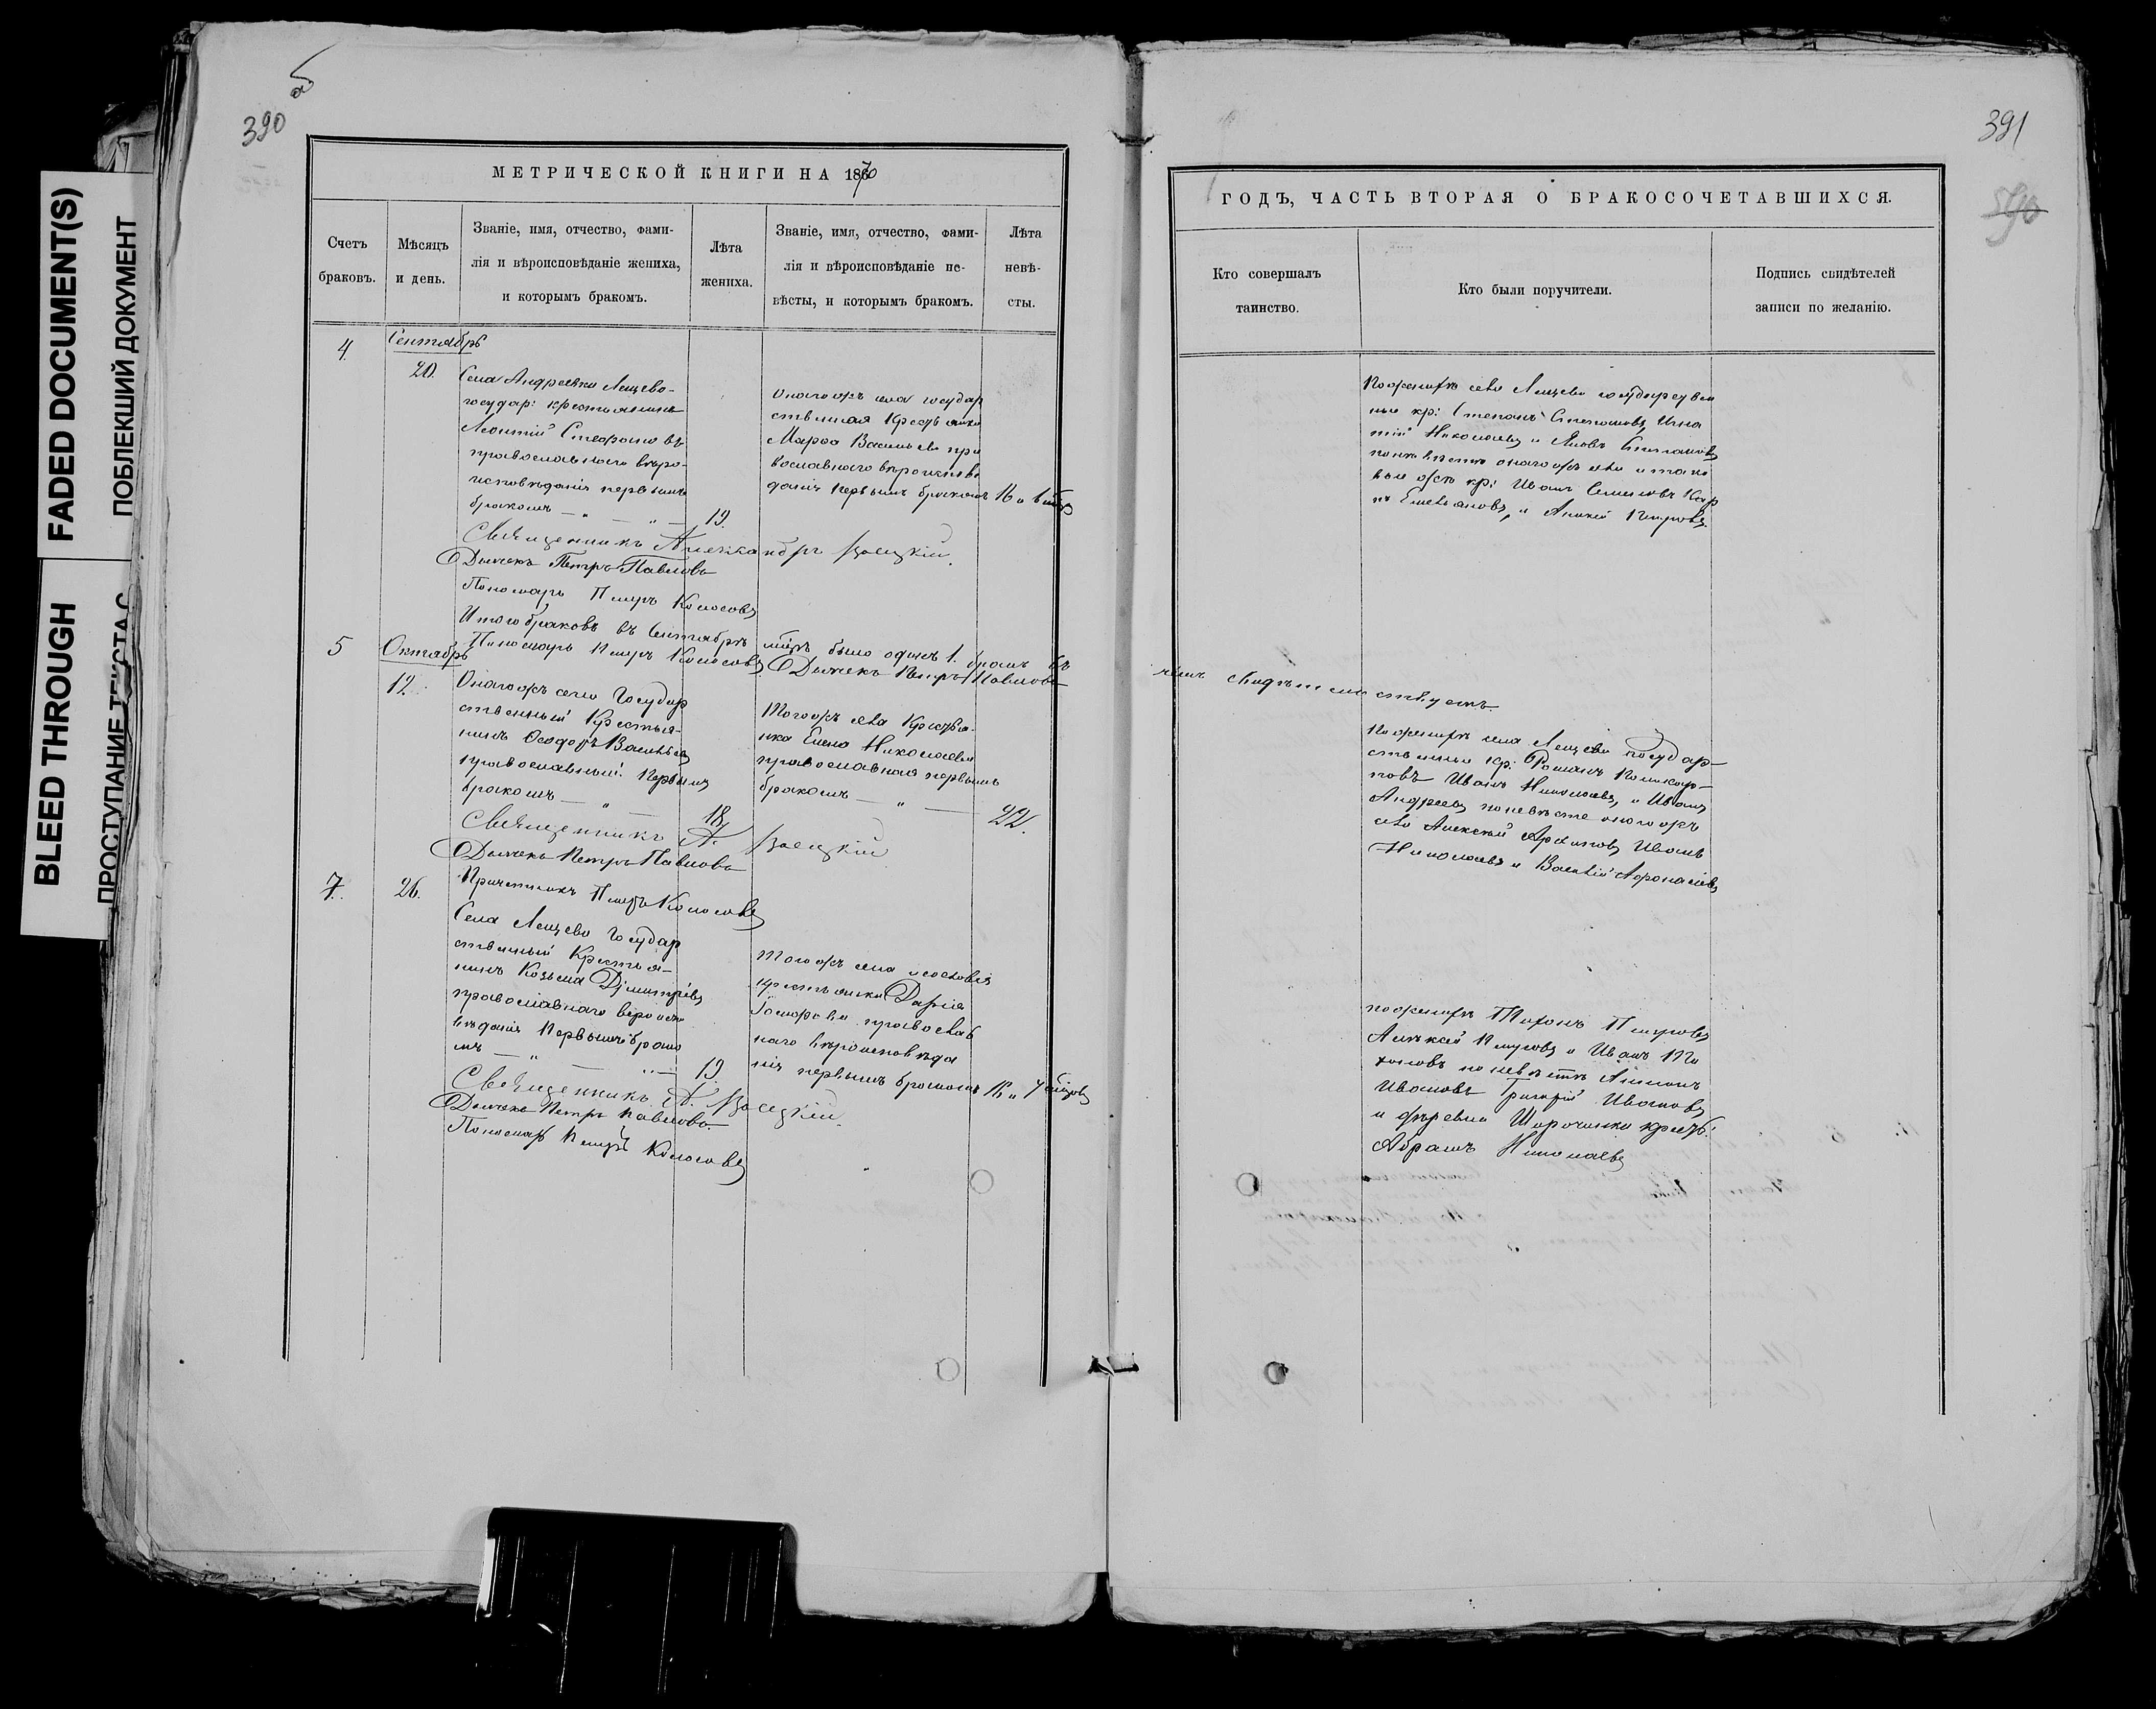 BLEED THROUGH FADED DOCUMENT(S)
ПРОСТУПАНИЕ ТЕКСТА С ПОБЛЕКШИЙ ДОКУМЕНТ
390
МЕТРИЧЕСКОЙ КНИГИ НА 1870
Счетъ браковъ.
Мѣсяцъ и день.
Званіе, имя, отчество, фами-
лія и вѣроисповѣданіе жениха,
и которымъ бракомъ.
Лѣта жениха.
Званіе, имя, отчество, фами-
лія и вѣроисповѣданіе не-
вѣсты, и которымъ бракомъ.
Лѣта
невѣ-
сты.
4.
Сентябрь
20.
Села Андреевки Лещево
государ: крестьянинъ
Леонтій Стефановъ
православнаго вѣро-
исповѣданія первымъ
бракомъ
19.
Онагожъ села государ
ственная крестьянка
Марѳа Васильева пра
вославнаго вѣроисповѣ
данія первымъ бракомъ
16 и
Священникъ Александръ
Дьячекъ Петръ Павловъ
Пономарь Петръ Колосовъ
Итого браковъ въ Сентябрѣ м̃цѣ было одинъ 1.
Пономарь Петръ Колосовъ Дьячекъ Петръ Павловъ
5
Октябрь
12.
Онагожъ села Государ
ственный Крестья-
нинъ Ѳеодоръ Васильевъ
православный первымъ
бракомъ
18.
Тогожъ села Крестья-
нка Елена Николаева
православная первымъ
бракомъ
22.
Священникъ А.
Дьячекъ Петръ Павловъ
Причетникъ Петръ Колосовъ
7.
26.
Села Лещево Государ
ственный Крестья-
нинъ Козьма Димитріевъ
православнаго вероиспо
вѣданія первымъ брако
мъ
19.
Тогожъ села
крестьянка Дарія
православ
наго вѣроисповѣда
нія первымъ бракомъ
16 и 7
Священникъ А.
Дьячекъ Петръ Павловъ
Пономарь Петръ Колосовъ
391
590
ГОДЪ, ЧАСТЬ ВТОРАЯ О БРАКОСОЧЕТАВШИХСЯ.
Кто совершалъ таинство.
Кто были поручители.
Подпись свидѣтелей записи по желанію.
По женихѣ села Лещево государствен
ные кр: Степанъ Степановъ, Игна
тій Николаевъ и Яковъ Степановъ
по невѣстѣ онагожъ села и тако
вые же кр: Иванъ Семеновъ Кар
пъ Емельяновъ, и Алексей Петровъ.
чемъ свидѣтельствуемъ.
По женихѣ села Лещева государ-
ственные кр: Романъ Поликар-
повъ Иванъ Николаевъ, и Иванъ
Андреевъ по невѣсте оногожъ
села Алексѣй Архиповъ Иванъ
Николаевъ и Василій Афонасіевъ
по женихѣ Тихонъ Петровъ
Алексей Петровъ и Иванъ
по невѣстѣ
Ивановъ Григорій Ивановъ
и деревни
Абрамъ Николаевъ